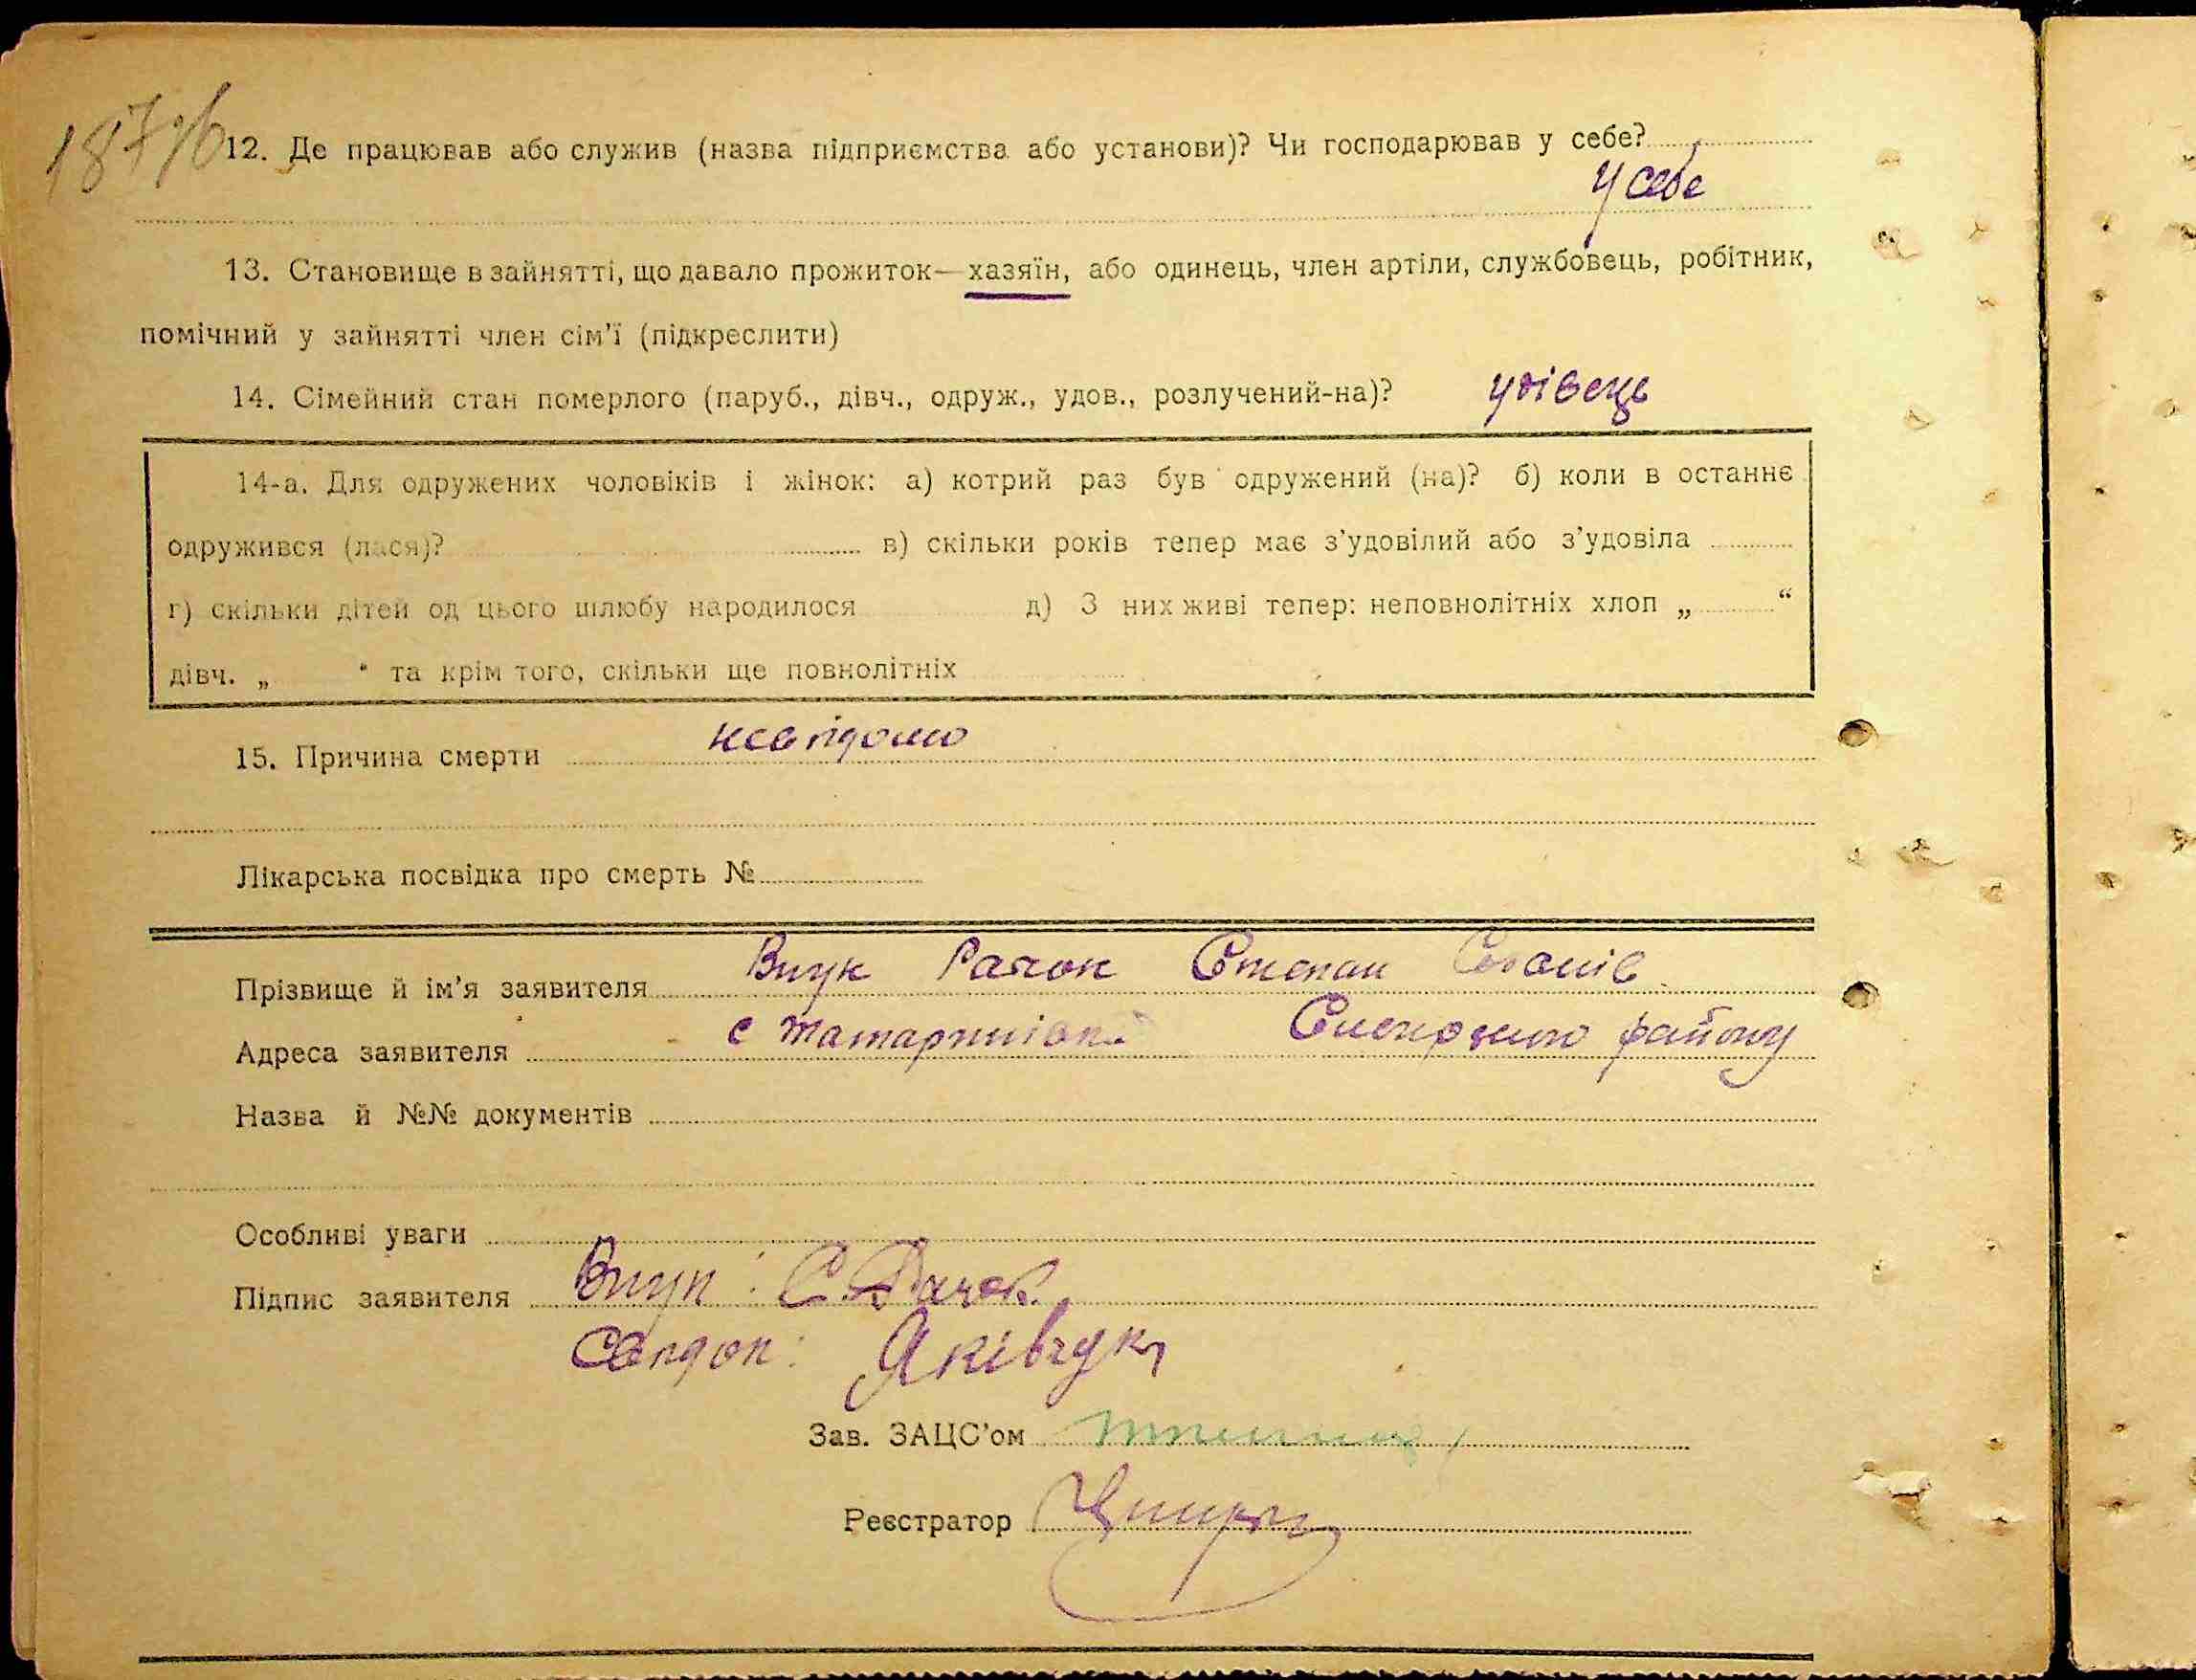 12. Де працював або служив (назва підприємства або установи)? Чи господарював у себе?
У себе
13. Становище в зайнятті, що давало прожиток—хазяїн, або одинець, член артіли, службовець, робітник,
помічний у зайнятті член сім'ї (підкреслити)
14. Сімейний стан померлого (паруб., дівч., одруж., удов., розлучений-на)? удівець
14-а. Для одружених чоловіків і жінок: а) котрий раз був одружений (на)? б) коли в останнє
одружився (лася)? в) скільки років тепер має з'удовілий або з'удовіла
г) скільки дітей од цього шлюбу народилося д) З них живі тепер: неповнолітніх хлоп „ “
дівч. „ “ та крім того, скільки ще повнолітніх
15. Причина смерти невідомо
Лікарська посвідка про смерть №
Прізвище й ім'я заявителя Внук Рачок Степан
Адреса заявителя с Татаринівка району
Назва й №№ документів
Особливі уваги
Підпис заявителя Внук: С. Рачок
Свідок: Яківчук
Зав. ЗАЦС'ом
Реєстратор